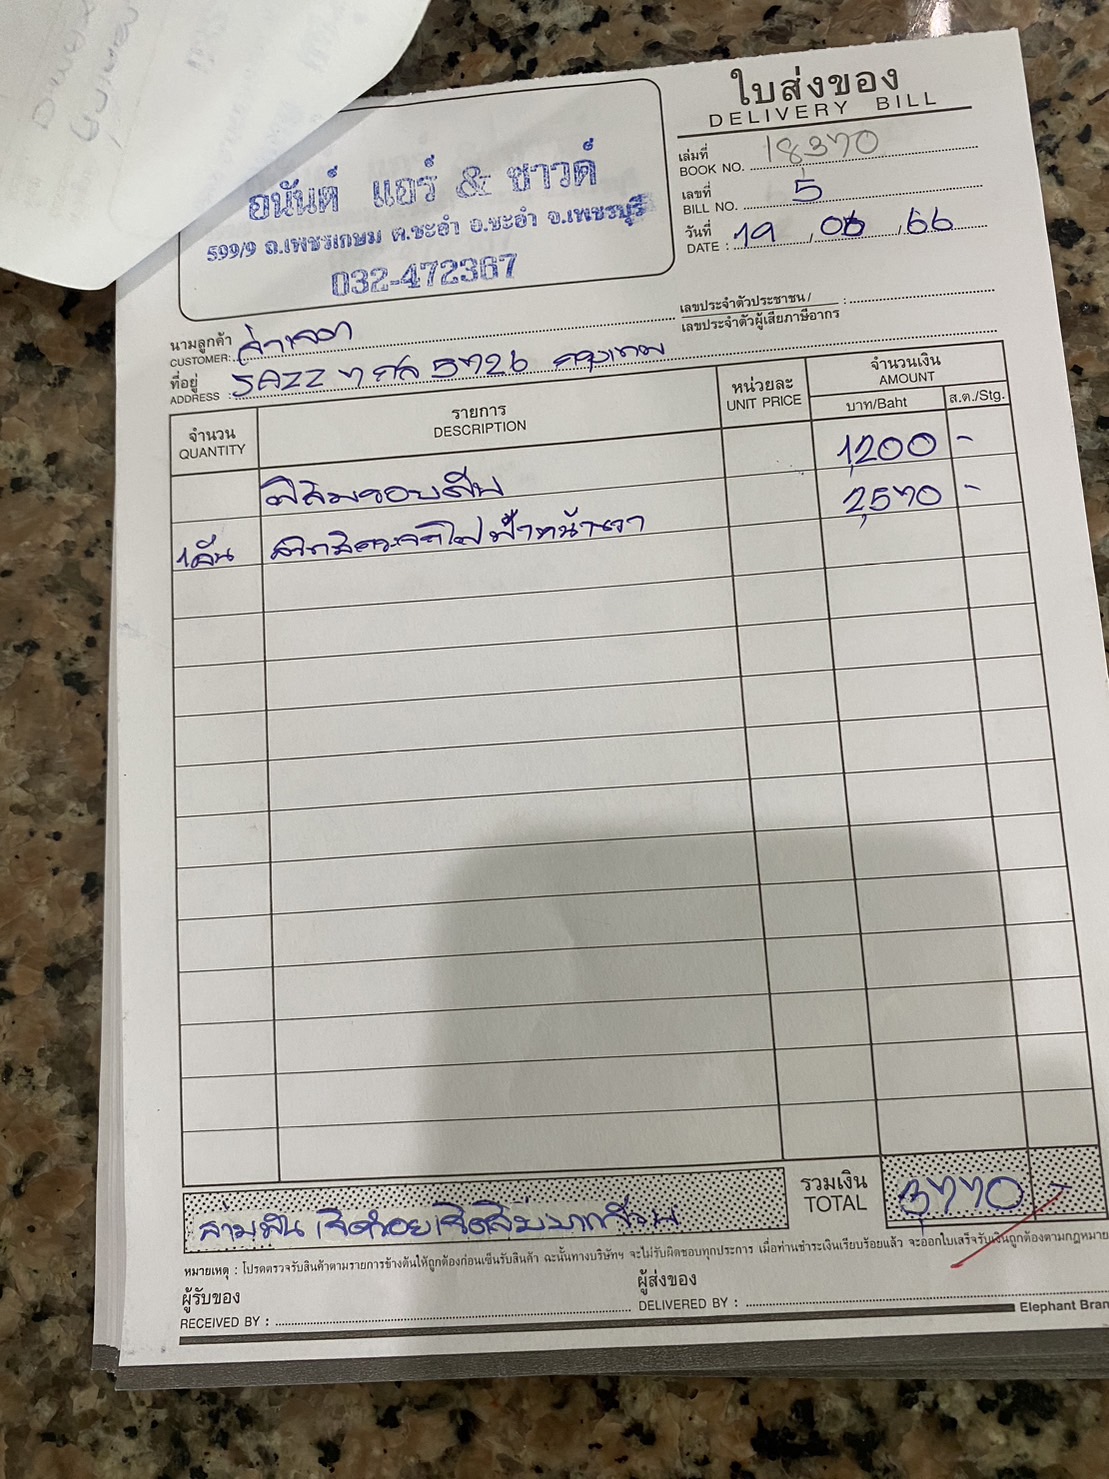 ใบส่งของ
DELIVERY BILL
อนันต์ แอร์ & ซาวด์
599/9 ถ.เพชรเกษม ต.ชะอำ อ.ชะอำ จ.เพชรบุรี
032-472367
เล่มที่
BOOK NO. 18370
เลขที่
BILL NO. 5
วันที่
DATE : 19 , 06 , 66
นามลูกค้า
CUSTOMER:
เลขประจำตัวประชาชน /
เลขประจำตัวผู้เสียภาษีอากร :
ที่อยู่
ADDRESS : JAZZ 7 กล 5726 กรุงเทพ
จำนวน
QUANTITY
รายการ
DESCRIPTION
หน่วยละ
UNIT PRICE
จำนวนเงิน
AMOUNT
บาท/Baht
ส.ต./Stg.
ฟิล์มรอบคัน 1,200 -
1 คัน ไฟฟ้าหน้าขวา 2,570 -
สามพันเจ็ดร้อยเจ็ดสิบบาทถ้วน
รวมเงิน
TOTAL 3,770 -
หมายเหตุ : โปรดตรวจรับสินค้าตามรายการข้างต้นให้ถูกต้องก่อนเซ็นรับสินค้า ฉะนั้นทางบริษัทฯ จะไม่รับผิดชอบทุกประการ เมื่อท่านชำระเงินเรียบร้อยแล้ว จะออกใบเสร็จรับเงินถูกต้องตามกฎหมาย
ผู้รับของ
RECEIVED BY :
ผู้ส่งของ
DELIVERED BY :
Elephant Bran